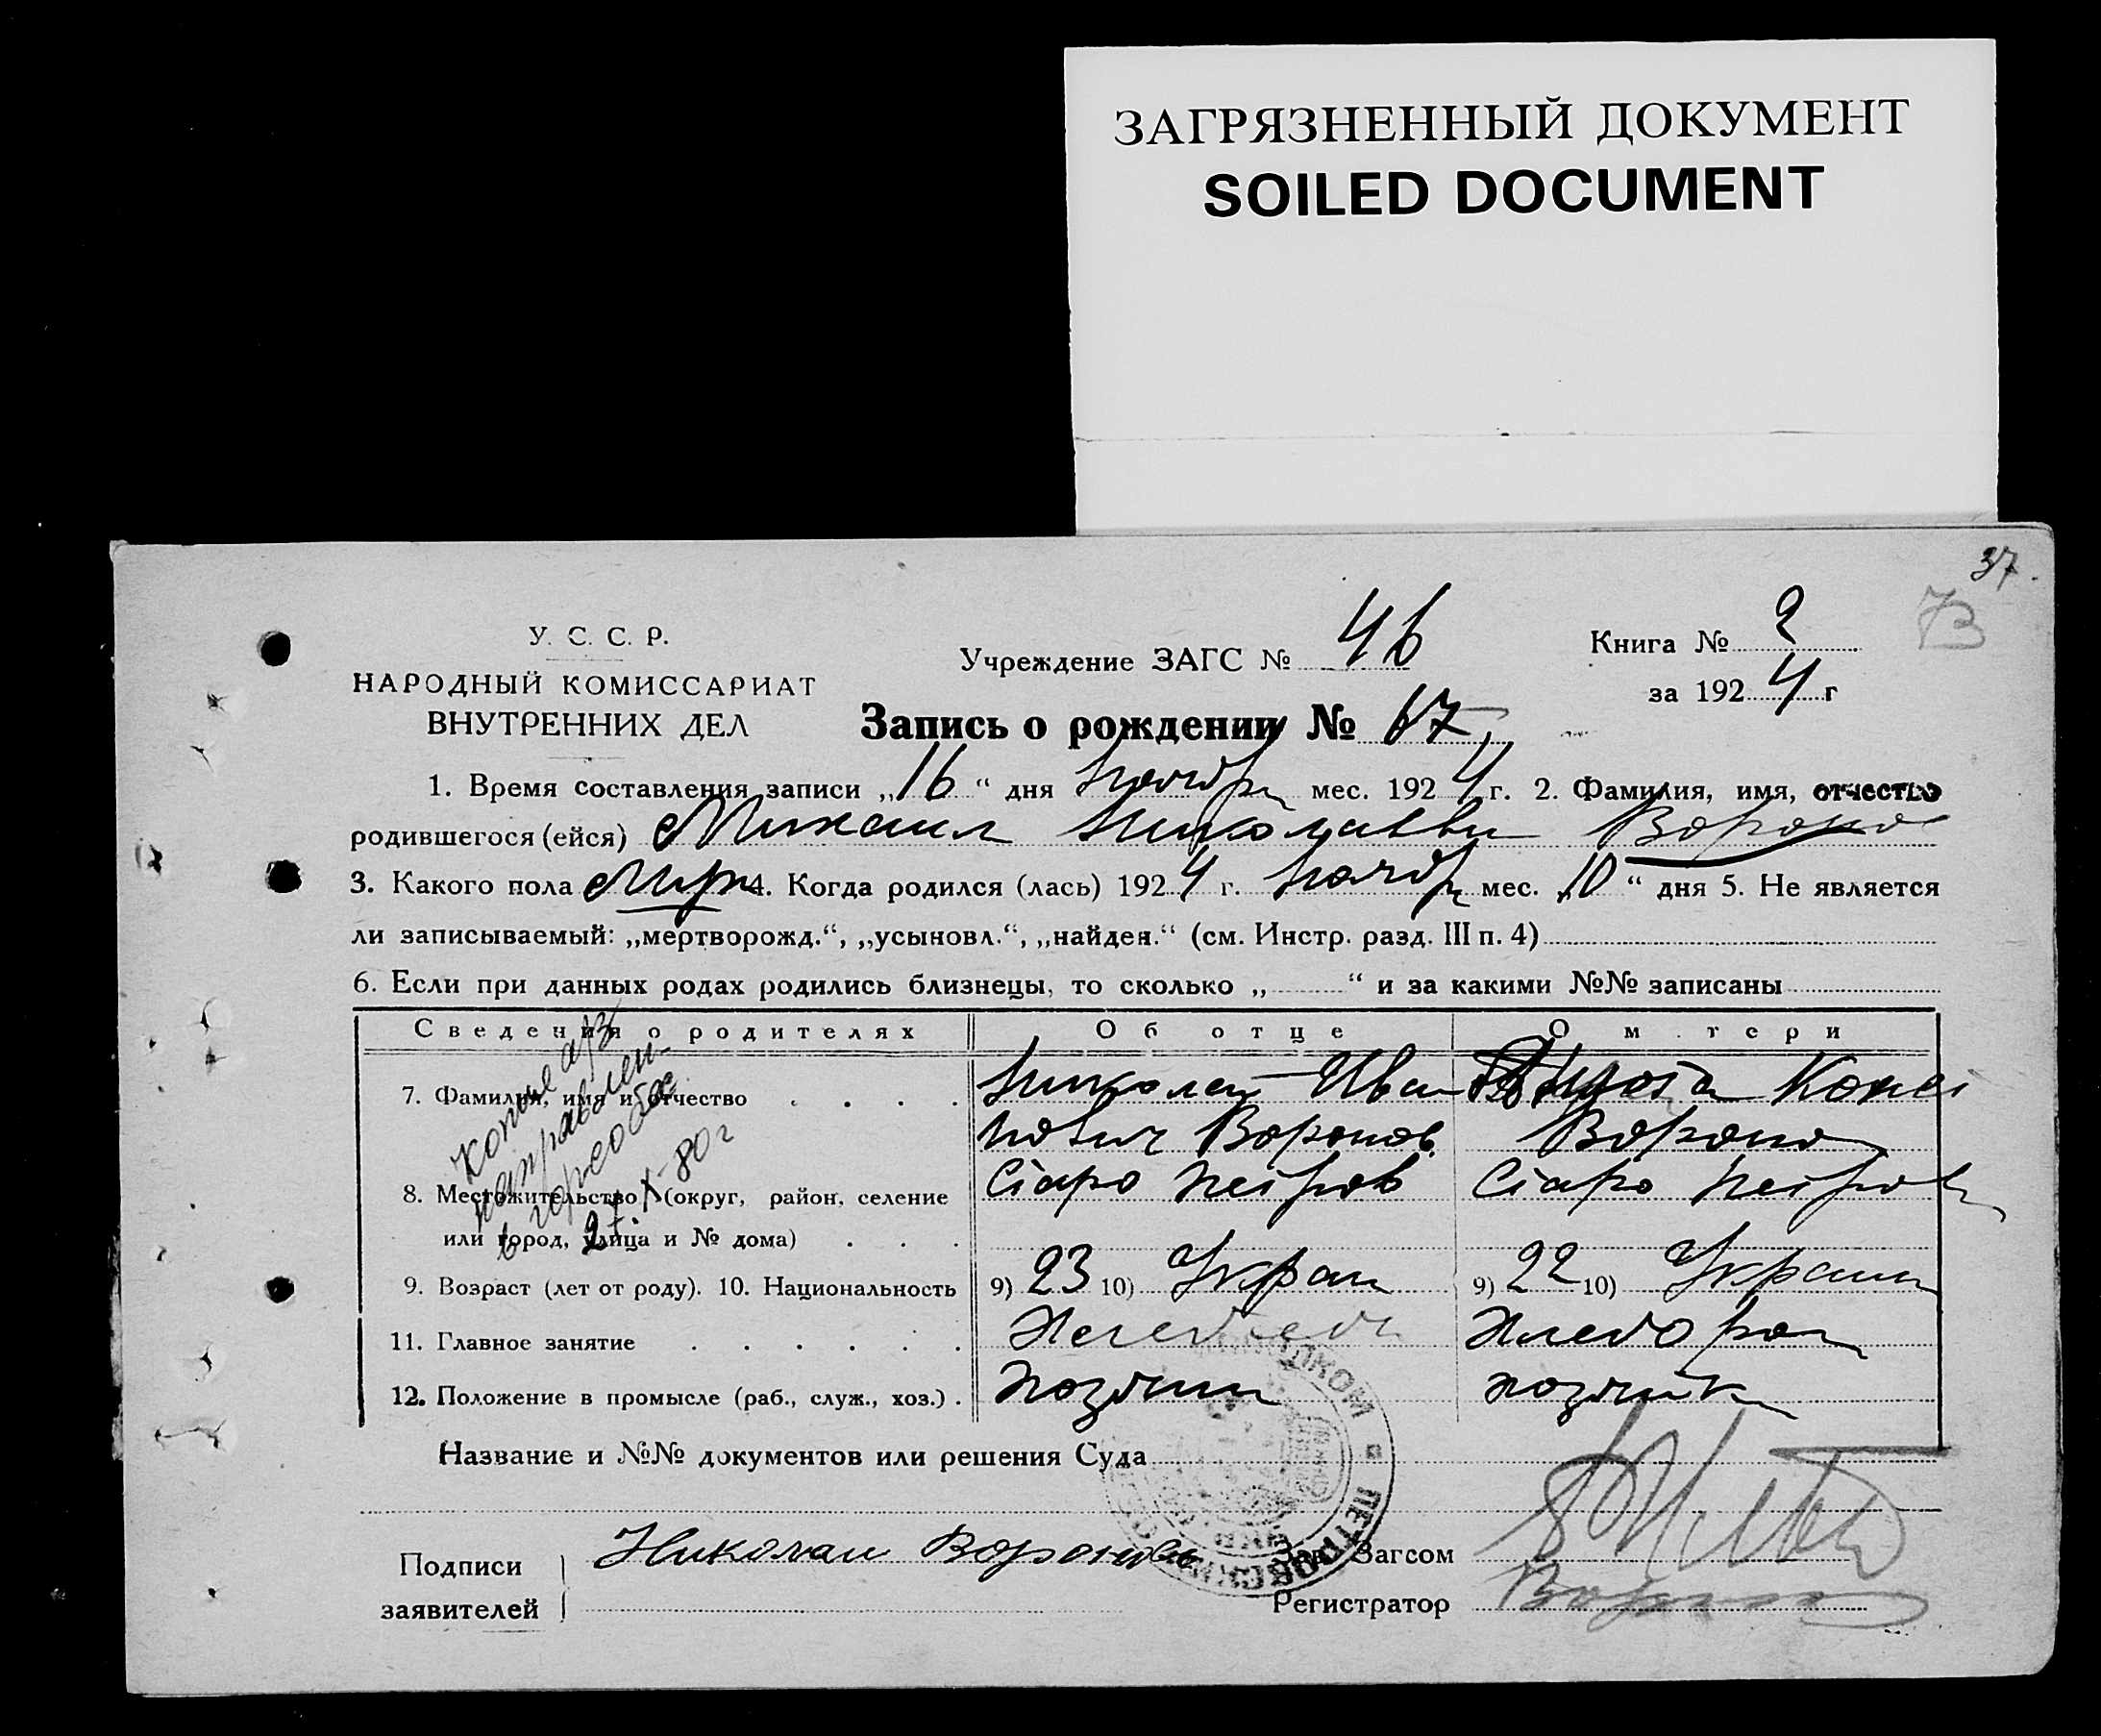 ЗАГРЯЗНЕННЫЙ ДОКУМЕНТ
SOILED DOCUMENT
37.
73
У. С. С. Р.
НАРОДНЫЙ КОМИССАРИАТ
ВНУТРЕННИХ ДЕЛ
Учреждение ЗАГС № 46
Книга № 2
за 1924 г
Запись о рождении № 67
1. Время составления записи „16“ дня ноября мес. 1924 г. 2. Фамилия, имя, отчество
родившегося (ейся) Михаил Николаевич Воронов
3. Какого пола Муж 4. Когда родился (лась) 1924 г. ноябр мес. „10“ дня 5. Не является
ли записываемый: „мертворожд.“, „усыновл.“, „найден.“ (см. Инстр. разд. III п. 4)
6. Если при данных родах родились близнецы, то сколько „ “ и за какими №№ записаны
Сведения о родителях Об отце О м тери
7. Фамилия, имя и отчество Николай Иван
нович Воронов Воронов
8. Местожительство (округ, район, селение Старо Петров Старо Петров
или город, улица и № дома)
9. Возраст (лет от роду). 10. Национальность 9) 23 10) Украин 9) 22 10) Украин
11. Главное занятие Хлебороб
12. Положение в промысле (раб., служ., хоз.) хозяин хозяйка
копия а/з
направлен
в горсобес
27 X-80 г
Название и №№ документов или решения Суда
Подписи Николай Воронов Зав. Загсом
заявителей Регистратор
ПЕТРОВСКИЙ